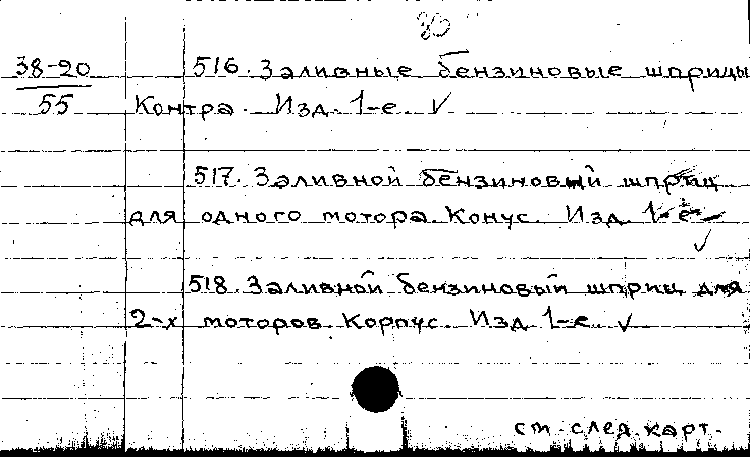 30
38-20 516. Заливные бензиновые шприцы
55 Контра. Изд. 1-е. ✓
517. Заливной бензиновый шприц
для одного мотора. Конус. Изд. 1-е
✓
518. Заливной бензиновый шприц для
2-х моторов. Корпус. Изд. 1-е. ✓
см. след. карт.